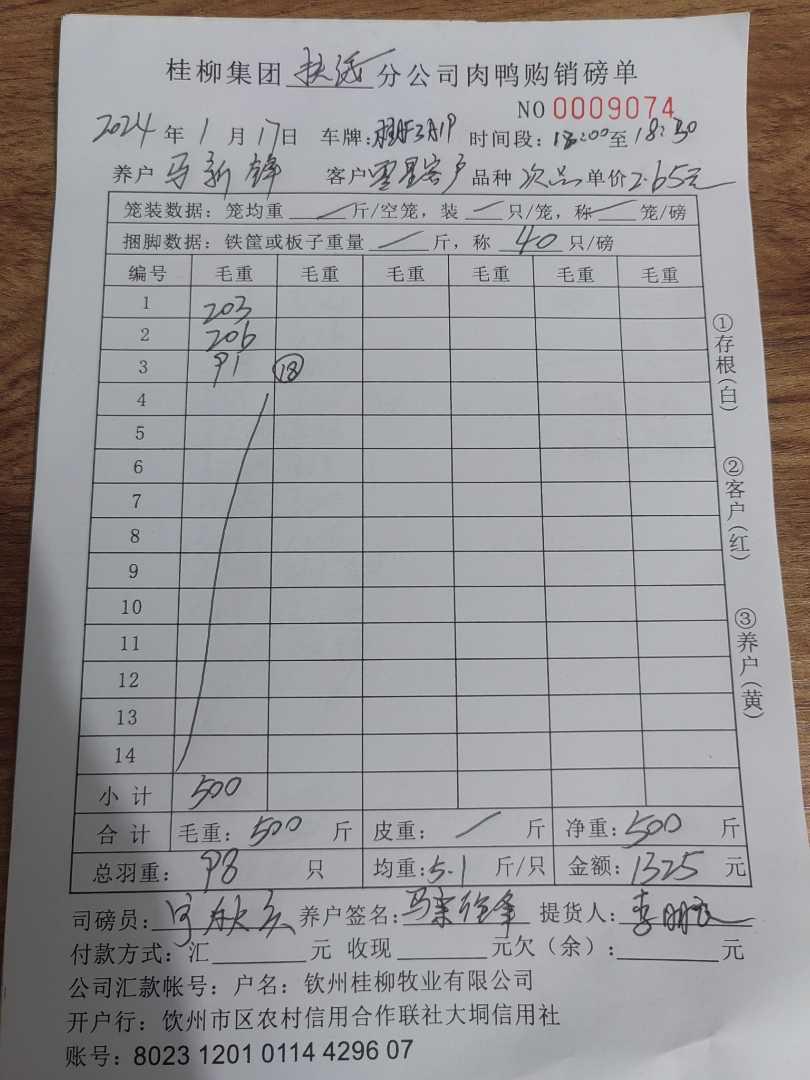 桂柳集团 扶绥 分公司肉鸭购销磅单
NO 0009074
2024 年 1 月 17 日 车牌: 时间段: 18:00 至 18:30
养户 马新锋 客户 零星客户 品种 次品 单价 2.65元
笼装数据: 笼均重 / 斤/空笼, 装 / 只/笼, 称 / 笼/磅
捆脚数据: 铁筐或板子重量 / 斤, 称 40 只/磅
编号 毛重 毛重 毛重 毛重 毛重 毛重
1 203
2 206
3 91 ⑱
4
5
6
7
8
9
10
11
12
13
14
小计 500
合计 毛重: 500 斤 皮重: / 斤 净重: 500 斤
总羽重: 98 只 均重: 5.1 斤/只 金额: 1325 元
司磅员: 养户签名: 马 锋 提货人: 李朋
付款方式: 汇 元 收现 元欠(余): 元
公司汇款帐号: 户名: 钦州桂柳牧业有限公司
开户行: 饮州市区农村信用合作联社大垌信用社
账号: 8023 1201 0114 4296 07
①存根(白)
②客户(红)
③养户(黄)